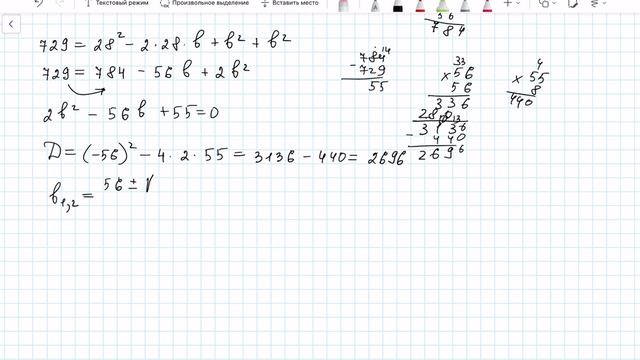 Текстовый режим Произвольное выделение Вставить место
729 = 28² - 2·28·b + b² + b²
729 = 784 - 56b + 2b²
2b² - 56b + 55 = 0
D = (-56)² - 4·2·55 = 3136 - 440 = 2696
b₁,₂ = 56 ± √
56
784
14
784
- 729
55
33
× 56
56
336
280
3136
- 440
2696
4
× 55
8
440